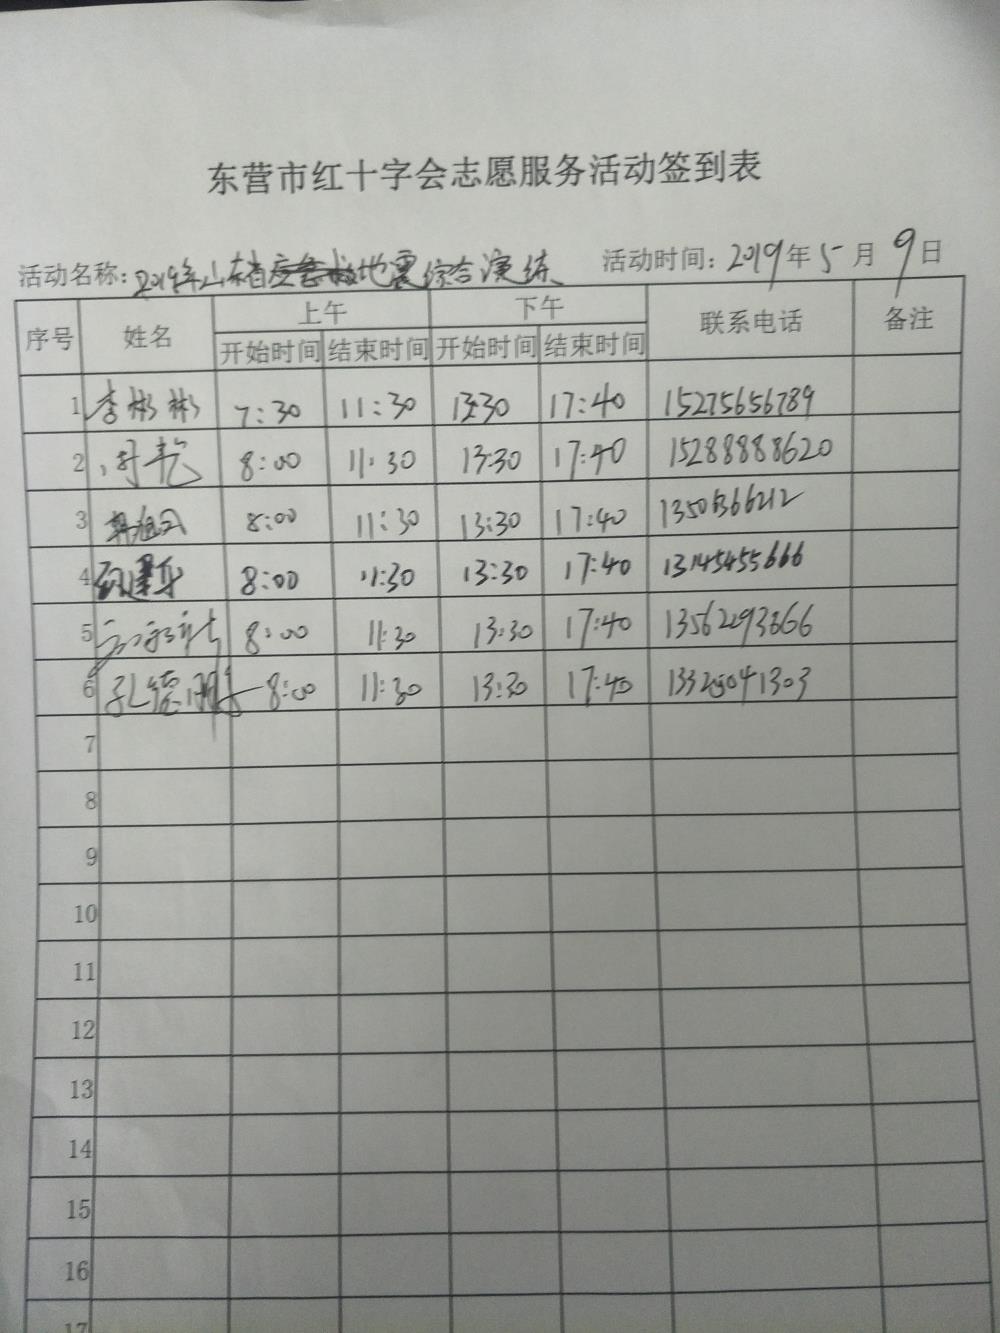 东营市红十字会志愿服务活动签到表
活动名称：2019年山东省地震综合演练 活动时间：2019年5月9日
序号 姓名 上午 下午 联系电话 备注
开始时间 结束时间 开始时间 结束时间
1 李彬彬 7:30 11:30 13:30 17:40 15275656789
2 8:00 11:30 13:30 17:40 15288888620
3 8:00 11:30 13:30 17:40
4 8:00 11:30 13:30 17:40 13145455666
5 8:00 11:30 13:30 17:40
6 孔德 8:00 11:30 13:30 17:40
7
8
9
10
11
12
13
14
15
16
17